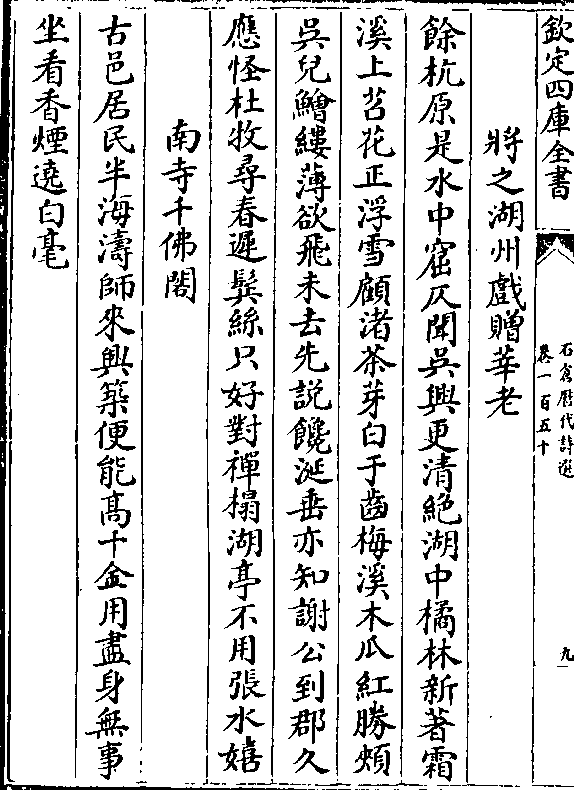 欽定四庫全書
石倉歷代詩選
卷一百五十
九
將之湖州戲贈莘老
餘杭原是水中窟仄聞吳興更清絶湖中橘林新著霜
溪上苕花正浮雪顧渚茶芽白于齒梅溪木瓜紅勝頰
吳兒鱠縷薄欲飛未去先説饞涎垂亦知謝公到郡久
應怪杜牧尋春遲鬂絲只好對禪榻湖亭不用張水嬉
南寺千佛閣
古邑居民半海濤師來興築便能髙千金用盡身無事
坐看香煙遶白毫